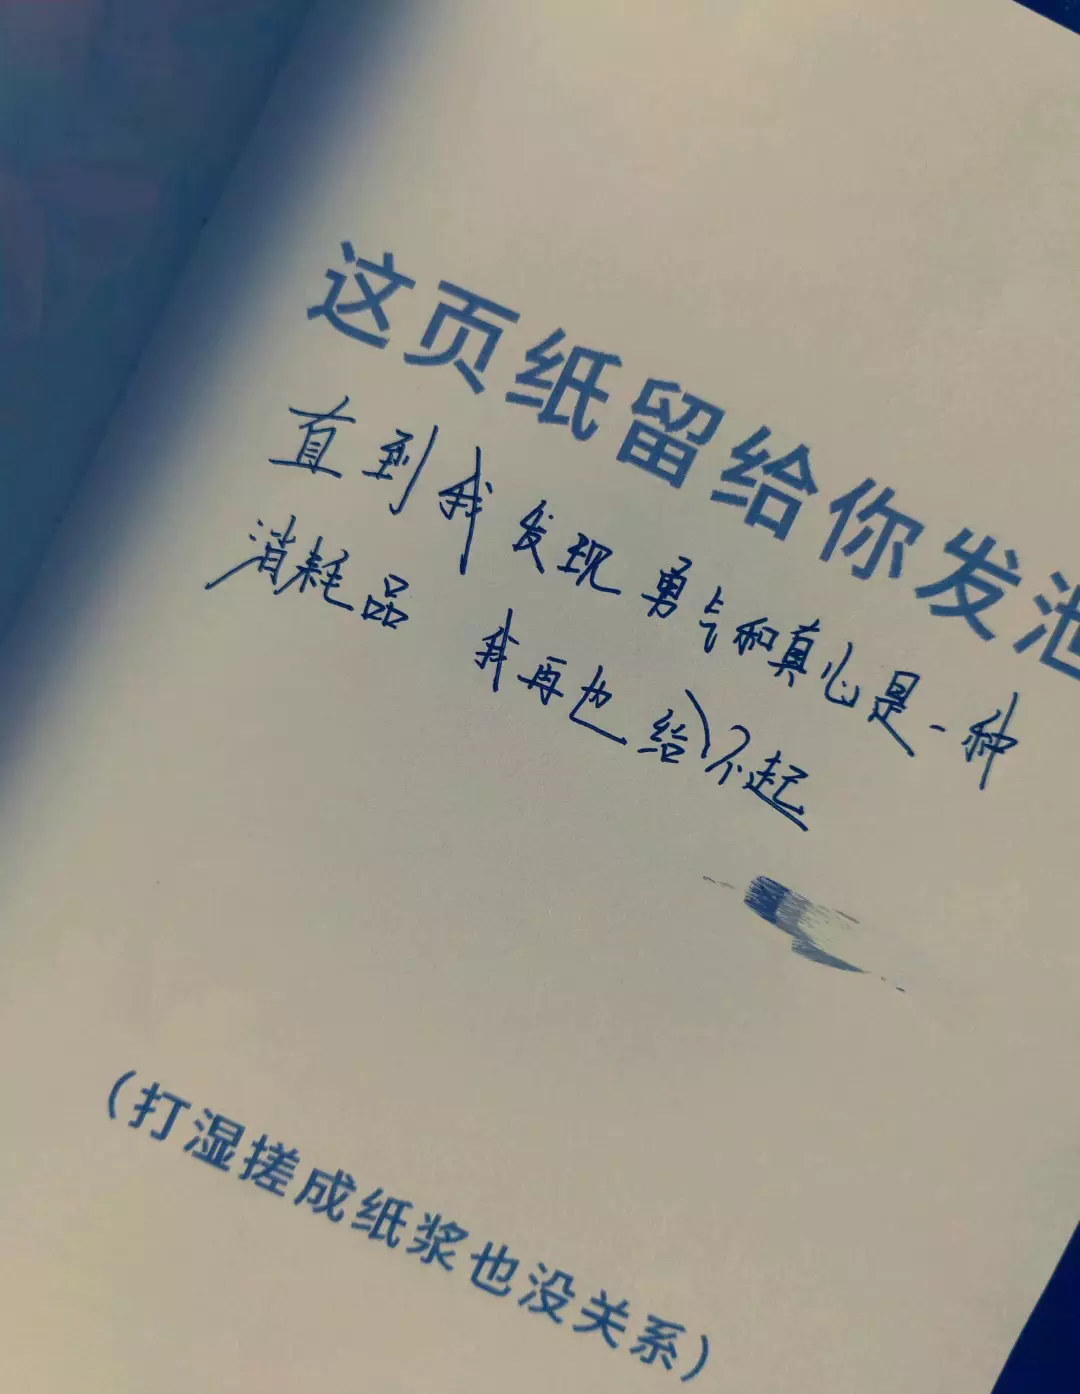 这页纸留给你发泄
直到我发现勇气和真心是一种
消耗品 我再也给不起
(打湿搓成纸浆也没关系)